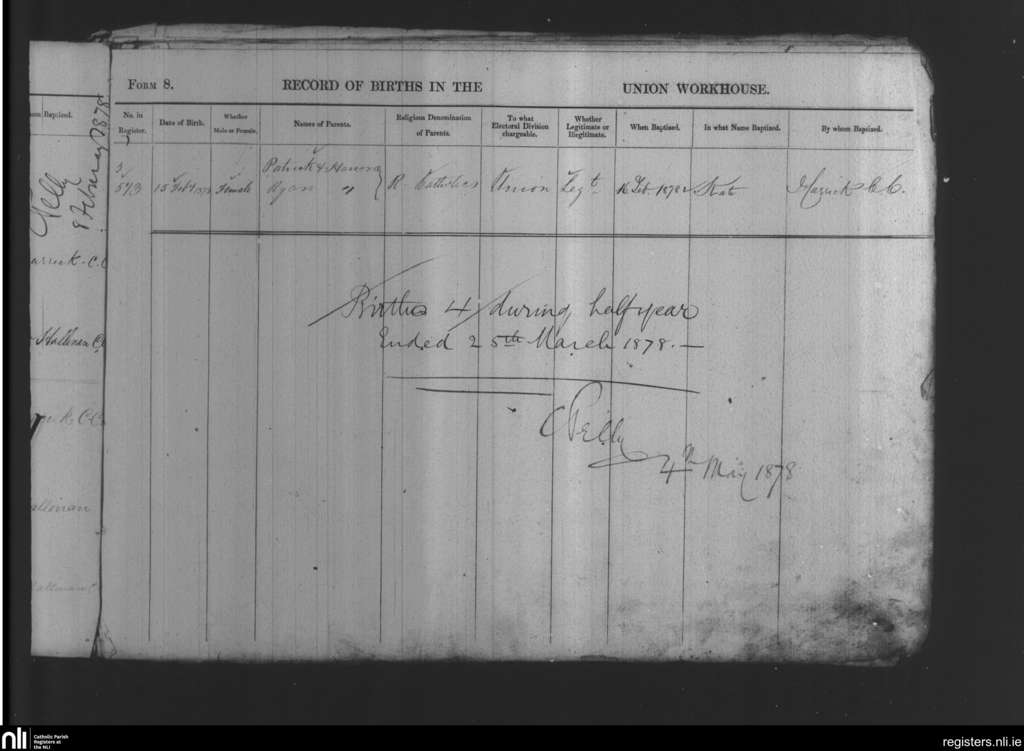 om Baptised.
Nelly
8 February 1878
arrick - C.C
Hallinan C.C
k, C.C.
allinan
allinan
FORM 8. RECORD OF BIRTHS IN THE UNION WORKHOUSE.
No. in Register. Date of Birth. Whether Male or Female. Names of Parents. Religious Denomination of Parents. To what Electoral Division chargeable. Whether Legitimate or Illegitimate. When Baptised. In what Name Baptised. By whom Baptised.
573 15 Feby 1878 Female Patrick & Hanora Ryan " R. Catholics Union Legt. 16 Feb. 1878 Kate C.C.
Births 4 during half year
Ended 25th March 1878. —
Nelly
4th May 1878
nli
Catholic Parish
Registers at
the NLI
registers.nli.ie